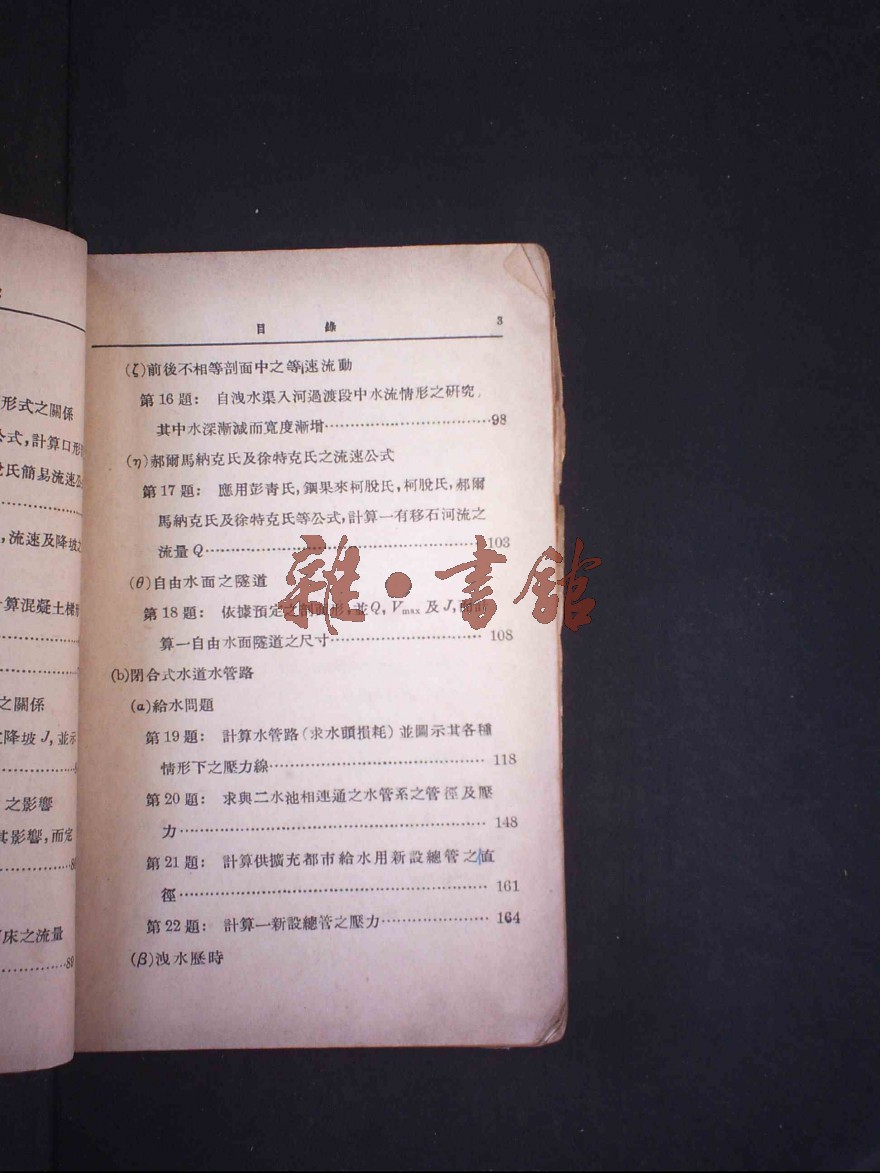 形式之關係
公式,計算口形
氏簡易流速公
,流速及降坡之
算混凝土梯形
之關係
降坡 J, 並示
之影響
其影響,而定
床之流量
80
目 錄 3
(ζ)前後不相等剖面中之等速流動
第16題: 自洩水渠入河過渡段中水流情形之研究,
其中水深漸減而寬度漸增……98
(η)郝爾馬納克氏及徐特克氏之流速公式
第17題: 應用彭青氏,鋼果來柯脫氏,柯脫氏,郝爾
馬納克氏及徐特克氏等公式,計算一有移石河流之
流量 Q……103
(θ)自由水面之隧道
第18題: 依據預定之剖面形,並 Q, Vmax 及 J,
算一自由水面隧道之尺寸……108
(b)閉合式水道水管路
(α)給水問題
第19題: 計算水管路(求水頭損耗)並圖示其各種
情形下之壓力線……118
第20題: 求與二水池相連通之水管系之管徑及壓
力……148
第21題: 計算供擴充都市給水用新設總管之直
徑……161
第22題: 計算一新設總管之壓力……164
(β)洩水歷時
雜·書館